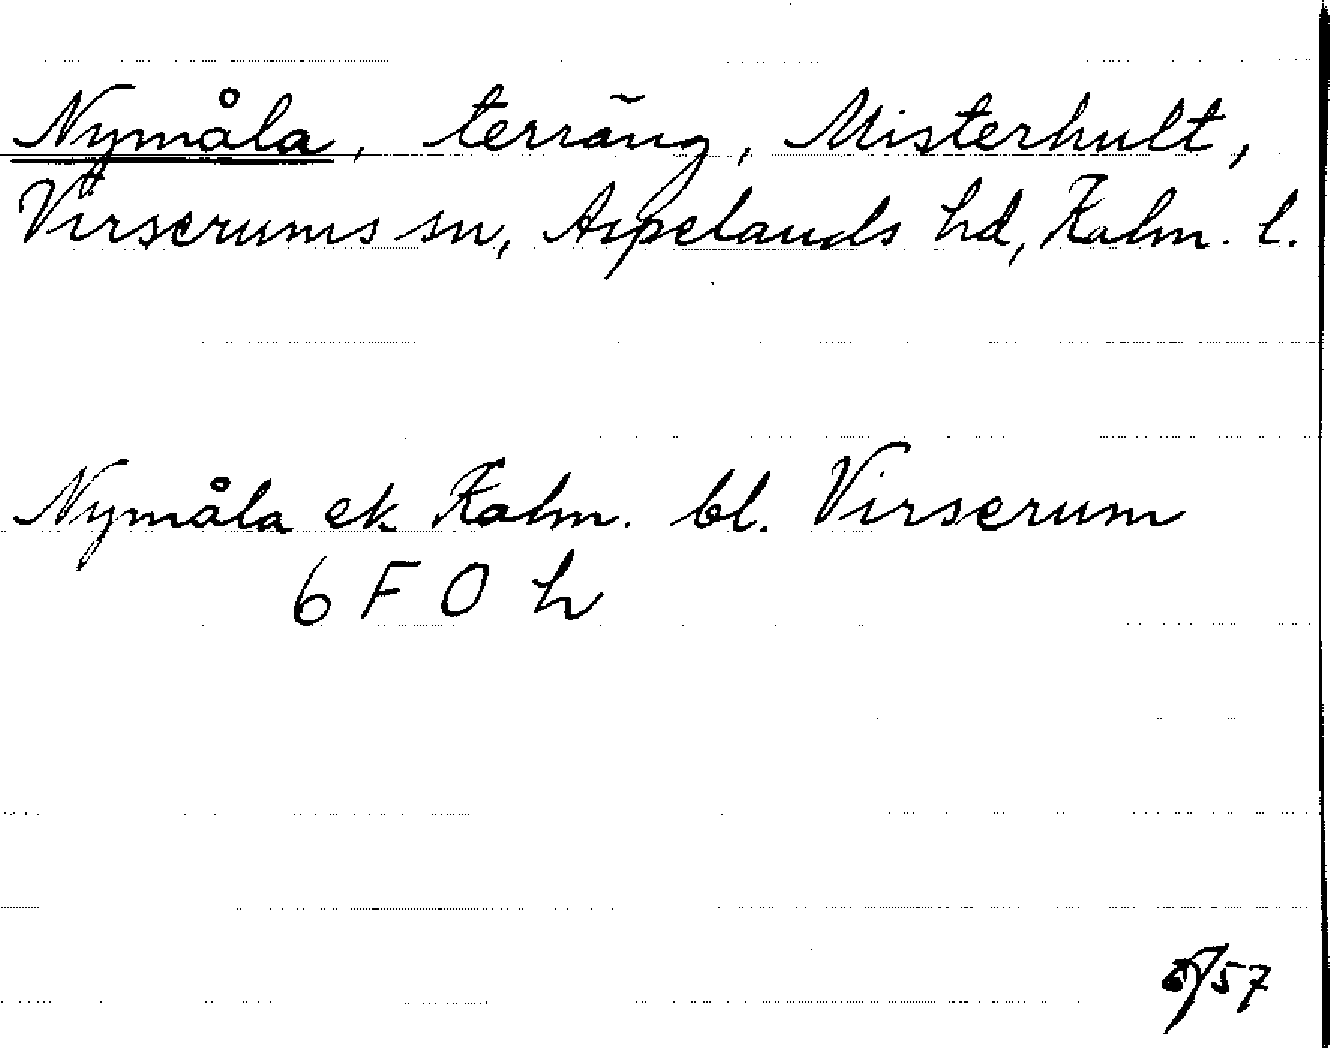 Nymåla, terräng, Misterhult,
Virserums sn, Aspelands hd, Kalm. l.
Nymåla ek Kalm. bl. Virserum
6 F O h